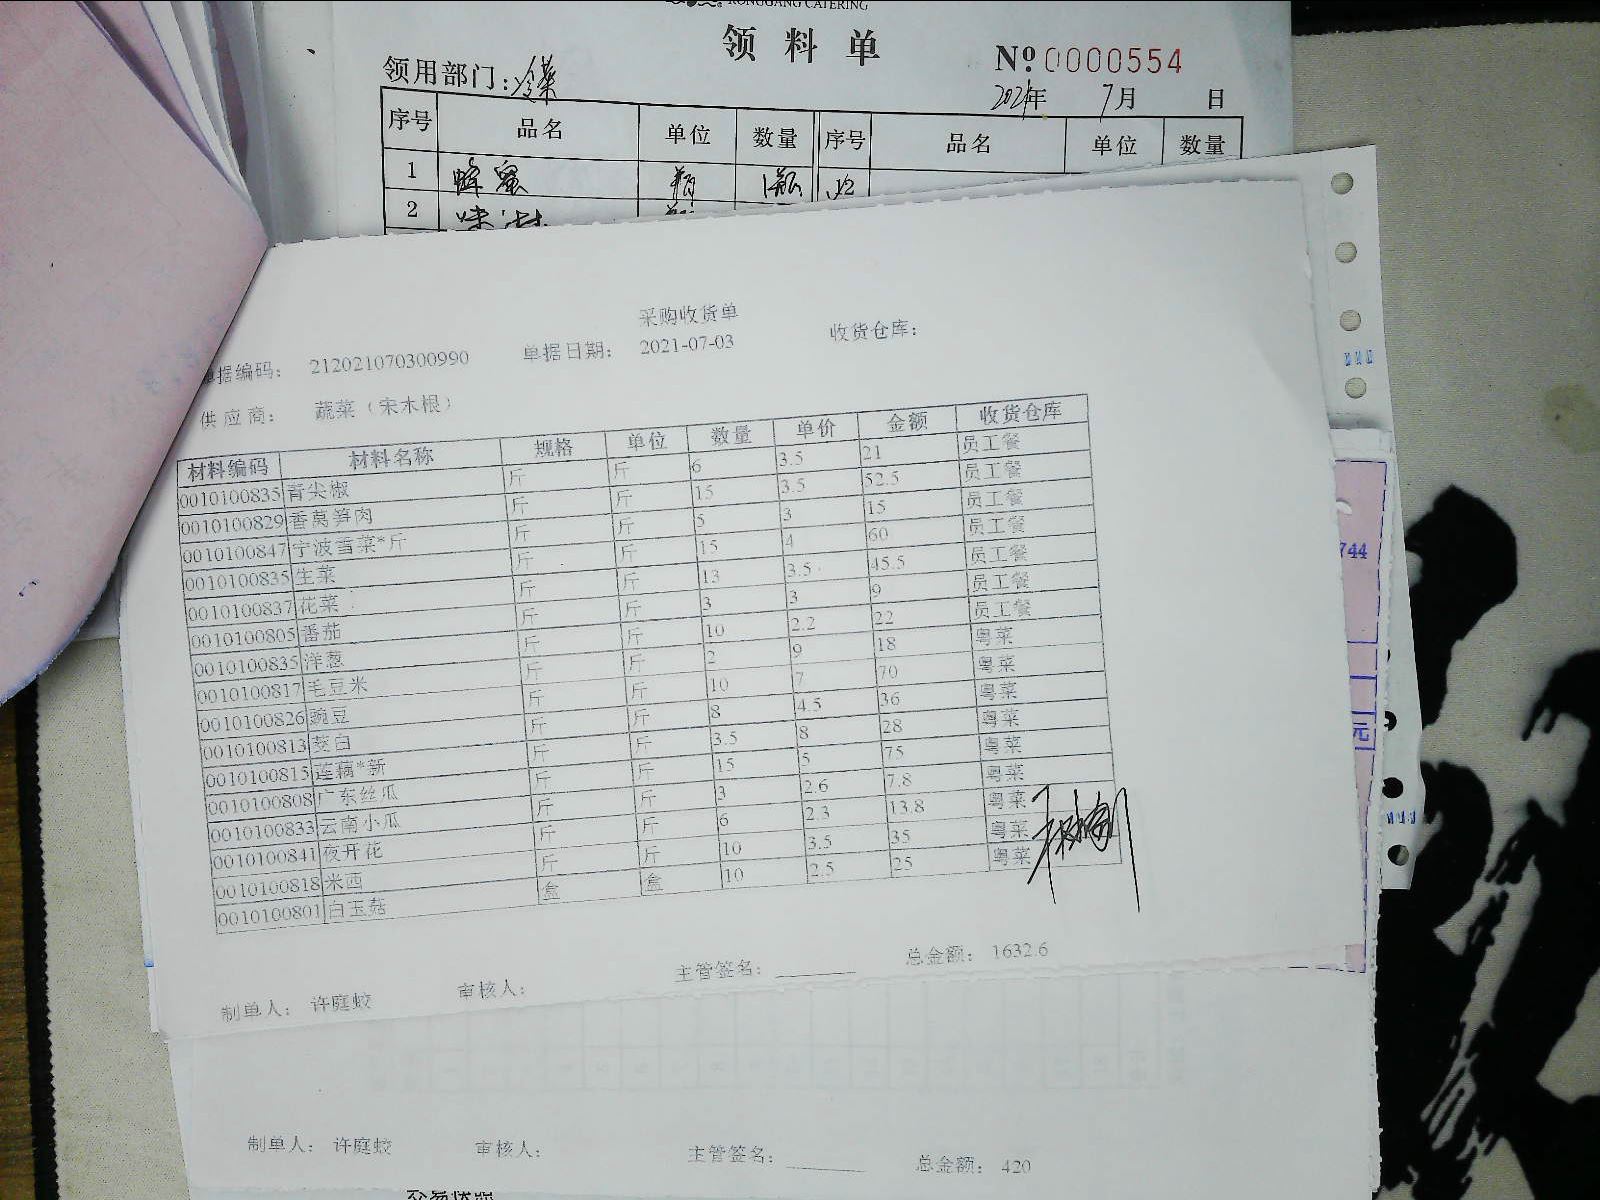 RONGGANG CATERING
领料单
No 0000554
领用部门：冷菜
2021年 7月 日
序号 品名 单位 数量 序号 品名 单位 数量
1 蜂蜜 瓶 1瓶 12
2 味淋
采购收货单
单据编码： 212021070300990 单据日期： 2021-07-03 收货仓库：
供应商： 蔬菜（宋木根）
材料编码 材料名称 规格 单位 数量 单价 金额 收货仓库
0010100835 青尖椒 斤 斤 6 3.5 21 员工餐
0010100829 香莴笋肉 斤 斤 15 3.5 52.5 员工餐
0010100847 宁波雪菜*斤 斤 斤 5 3 15 员工餐
0010100835 生菜 斤 斤 15 4 60 员工餐
0010100837 花菜 斤 斤 13 3.5 45.5 员工餐
0010100805 番茄 斤 斤 3 3 9 员工餐
0010100835 洋葱 斤 斤 10 2.2 22 员工餐
0010100817 毛豆米 斤 斤 2 9 18 粤菜
0010100826 豌豆 斤 斤 10 7 70 粤菜
0010100813 茭白 斤 斤 8 4.5 36 粤菜
0010100815 莲藕*新 斤 斤 3.5 8 28 粤菜
0010100808 广东丝瓜 斤 斤 15 5 75 粤菜
0010100833 云南小瓜 斤 斤 3 2.6 7.8 粤菜
0010100841 夜开花 斤 斤 6 2.3 13.8 粤菜
0010100818 米西 斤 斤 10 3.5 35 粤菜
0010100801 白玉菇 盒 盒 10 2.5 25 粤菜
制单人： 许庭蛟 审核人： 主管签名： 总金额： 1632.6
制单人： 许庭蛟 审核人： 主管签名： 总金额： 420
744
元